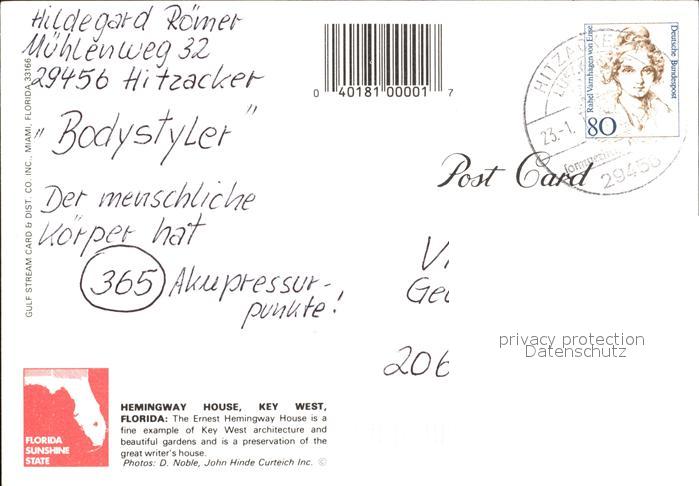 Hildegard Römer
Mühlenweg 32
29456 Hitzacker
„Bodystyler"
Der menschliche
Körper hat
365 Akupressur-
punkte!
GULF STREAM CARD & DIST. CO. INC., MIAMI, FLORIDA 33166
0 40181 00001 7
Rahel Varnhagen von Ense
Deutsche Bundespost
80
HITZACKER
23.-1.
29456
Post Card
Vi
Ge
206
privacy protection
Datenschutz
FLORIDA
SUNSHINE
STATE
HEMINGWAY HOUSE, KEY WEST,
FLORIDA: The Ernest Hemingway House is a
fine example of Key West architecture and
beautiful gardens and is a preservation of the
great writer's house.
Photos: D. Noble, John Hinde Curteich Inc. ©